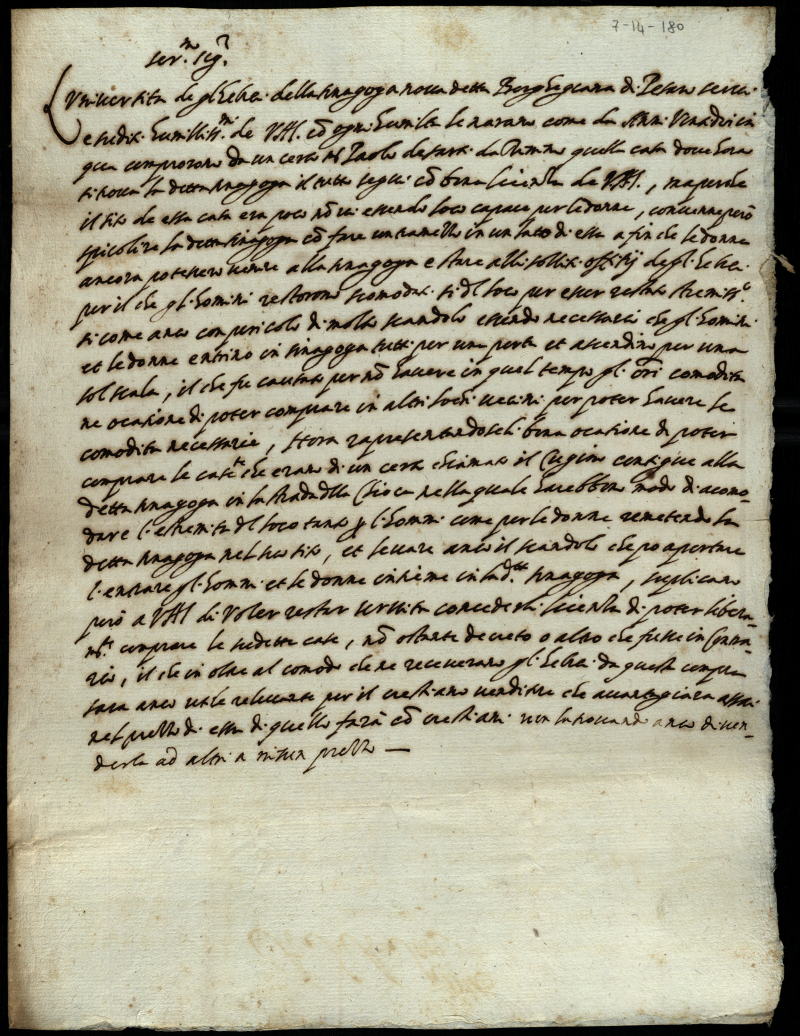 7-14-180
Ser.mo Sig.r
L'Università de gl'Hebrei della sinagoga nova detta Borghegiana di Pesaro servi
e suditi humilliss.mi de V.A.S. cō ogni humiltà le narano come da anni vinadrieto
comprorono da un certo M. Paolo da Rimino quella casa dove hora
si trova la detta sinagoga il tutto seguì cō bona licenza de V.A.S., ma perche
il sito de essa casa era poco nō vi essendo loco capace per le donne, convenne però
la detta sinagoga cō fare un ramello in un lato di essa a fin che le donne
ancora potessero venire alla sinagoga e stare alli soliti offitij de gl'Hebrei
per il che gl'homini restorono scomodati si dl loco per esser restato stremiss.o
si come anco con pericolo di molto scandolo essendo necessario che gl'homini
et le donne entrino in sinagoga tutti per una porta et ascendino per una
sol scala, il che fu causato per nō havere in quel tempo gl'ori comodità
ne ocasione di poter comprare in altri lochi vecini per poter havere le
comodita necessarie, et hora rapresentandoseli bona ocasione di poter
comprare le case che erano di un certo chiamato il Cugino contigue alla
detta sinagoga in la strada dlla nella quale harebbono modo di acomo-
dare l'estremità dl loco tanto p l'homini come per le donne remetendo la
detta sinagoga nel suo sito, et levare anco il scandolo che po aportare
l'entrare gl'homini et le donne insieme in la d.tta sinagoga, suplicano
però a V.A.S. di voler restar servita concederli licenza di poter libera-
m.te comprare le sudette case, nō ostante decreto o altro che fusse in contra-
rio, il che in oltre al comodo che ne receverano gl'Hebrei da questa compra
sara anco utile relevante per il crestiano venditore che avantagiarà assai
nel prezzo di essa di quello farà cō crestiani non trovando anco di ven-
derla ad altri a nisun prezzo —